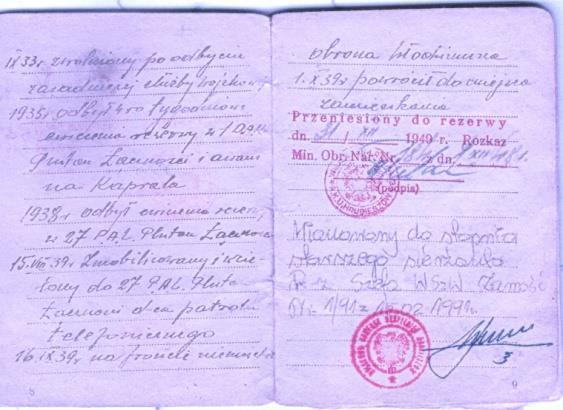 IX 33r zwolniony po odbyciu
zasadniczej służby wojskowej
1935r odbył 4ro tygodniowe
ćwiczenia rezerwy w 1 
Pluton Łączności i awans
na Kaprala
1938r odbył ćwiczenia rezerwy
w 27 P.A.L. Pluton Łączno
15.VIII 39r Zmobilizowany i wcie
lony do 27 PAL Pluto
Łączności d-ca patrolu
telefonicznego
16.IX.39r na froncie niemiec
8
obrona Włodzimierza
1.X 39r powrócił do miejsca
zamieszkania
Przeniesiony do rezerwy
dn. 31/XII 1949 r. Rozkaz
Min. Obr. Nar. Nr. dn.
(podpis)
Mianowany do stopnia
starszego sierżanta
R-z Szefa WSzW Zamość
Nr 1/91 z 02.1991r.
3
9